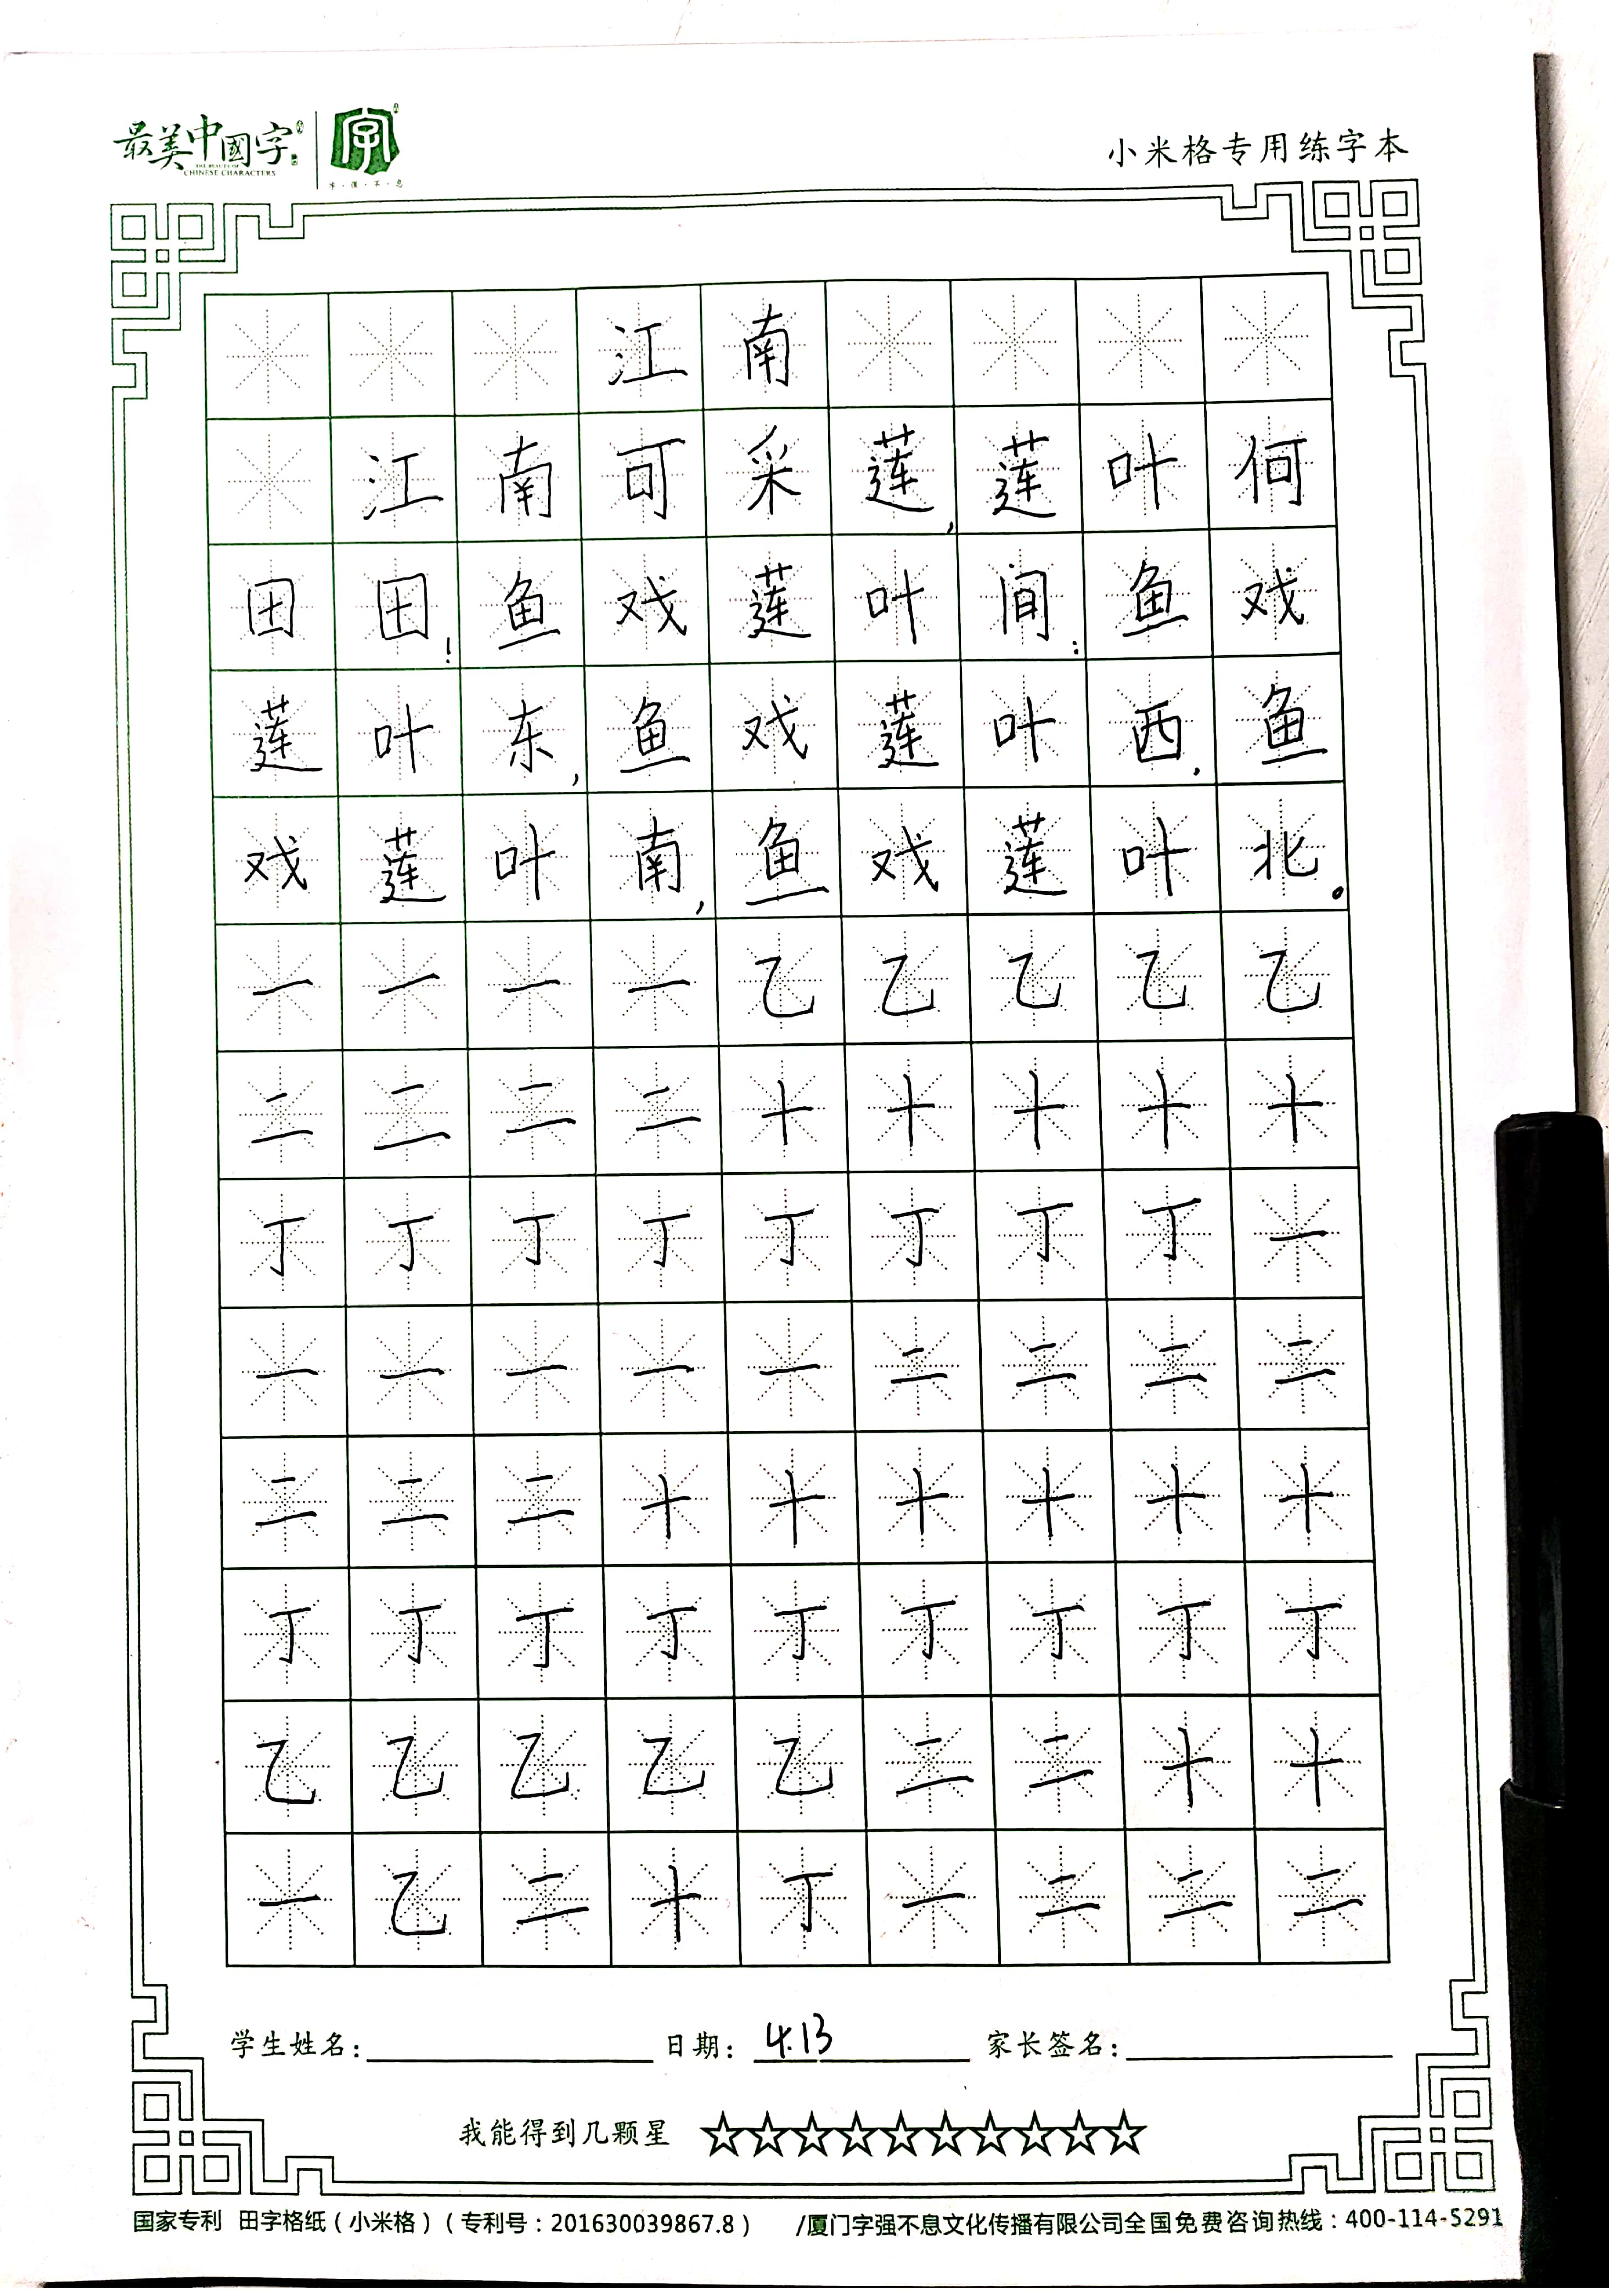 最美中國字
THE BEAUTY OF
CHINESE CHARACTERS
字
字·强·不·息
小米格专用练字本
江南
江南可采莲,莲叶何
田田!鱼戏莲叶间:鱼戏
莲叶东,鱼戏莲叶西,鱼
戏莲叶南,鱼戏莲叶北。
一一一一乙乙乙乙乙
二二二二十十十十十
丁丁丁丁丁丁丁丁一
一一一一一二二二二
二二二十十十十十十
丁丁丁丁丁丁丁丁丁
乙乙乙乙乙二二十十
一乙二十丁一二二二
学生姓名: 日期: 4.13 家长签名:
我能得到几颗星 ☆☆☆☆☆☆☆☆☆☆
国家专利 田字格纸(小米格)(专利号:201630039867.8) /厦门字强不息文化传播有限公司全国免费咨询热线:400-114-5291